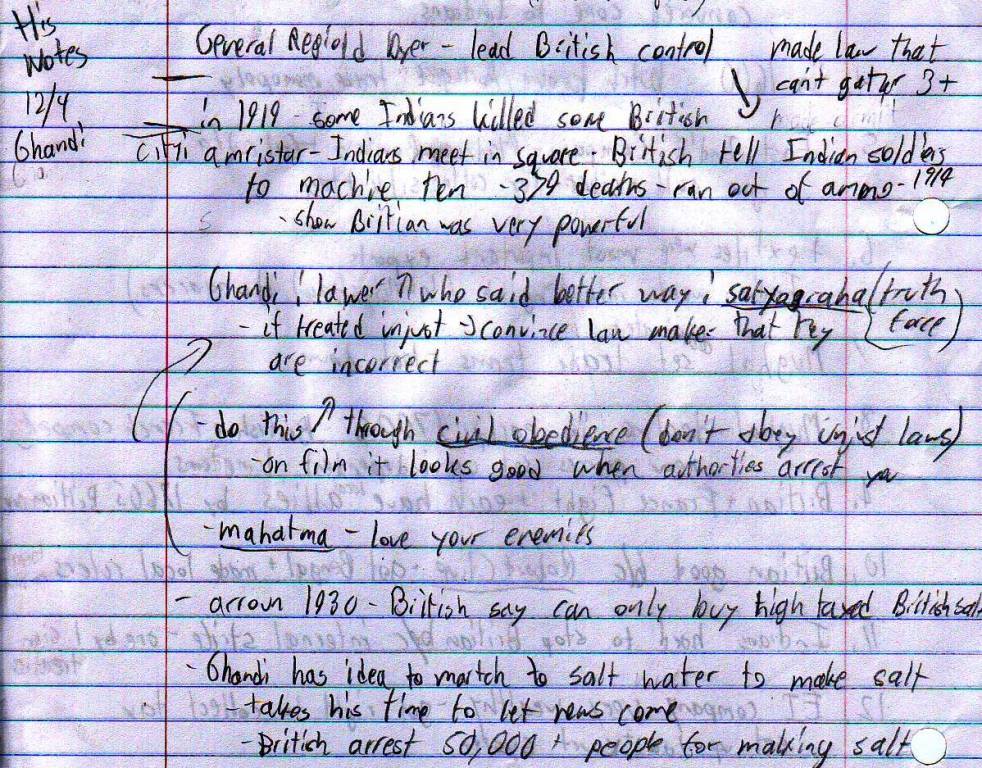 His
Notes
12/4
Ghandi
General Regiold Dyer - lead British control made law that
can't gatyr 3+
in 1919 - some Indians killed some British
citi amristar - Indians meet in square - British tell Indian soldiers
to machine ten - 379 deaths - ran out of ammo - 1919
- show Britian was very powerful
Ghandi ; lawer ↑ who said better way ; satyagraha (truth
force)
- if treated injust → convince law maker that they
are incorrect
- do this ↑ through civil obedience (don't obey unjust laws)
- on film it looks good when authorties arrest you
- mahatma - love your enemies
- arroun 1930 - British say can only buy high taxed British salt
- Ghandi has idea to martch to salt water to make salt
- takes his time to let news come
- British arrest 50,000 + people for making salt